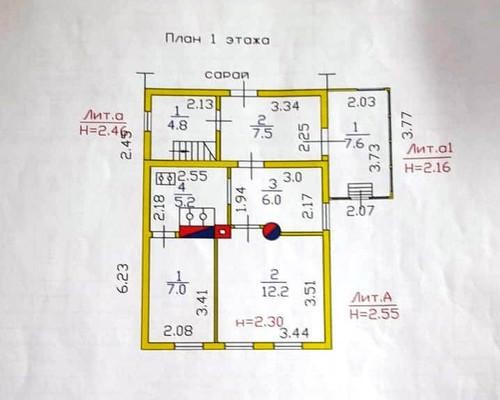 План 1 этажа
сарай
2.13
3.34
2.03
Лит.а
Н=2.46
2.45
1
4.8
2
7.5
2.25
1
7.6
3.73
3.77
Лит.а1
Н=2.16
2.55
4
5.2
2.18
1.94
3
6.0
3.0
2.17
2.07
6.23
1
7.0
3.41
2
12.2
3.51
Лит.А
Н=2.55
2.08
н=2.30
3.44